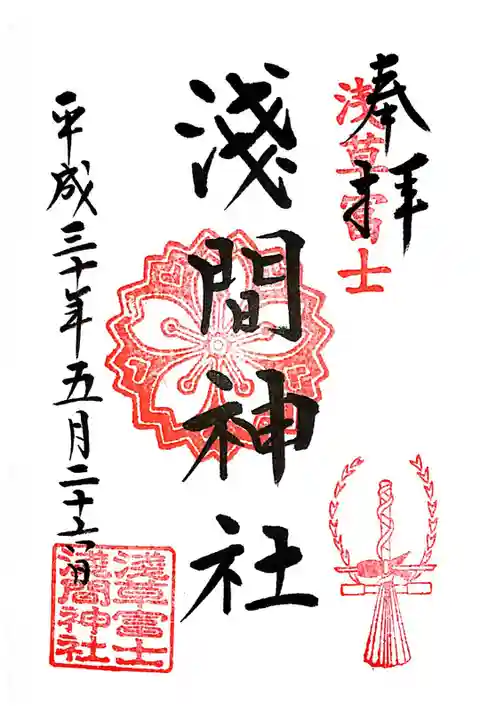 奉拝
淺草富士
淺間神社
平成三十年五月二十六日
淺草富士
淺間神社